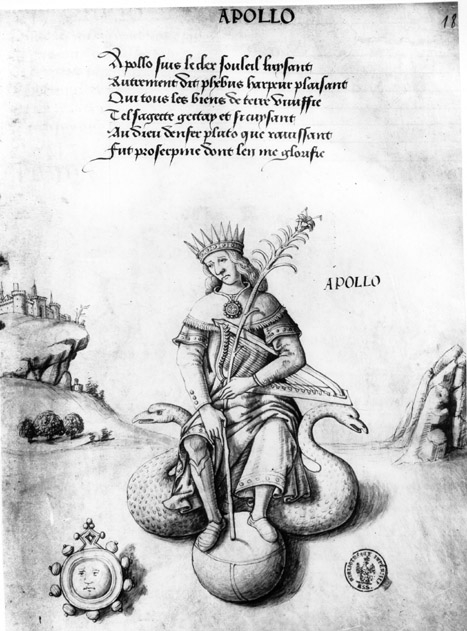 APOLLO
18
Apollo suis le cler souleil luysant
Autrement dit phebus harpeur plaisant
Qui tous les biens de terre viuiffie
Tel sagette gectay et si cuysant
Au dieu denfer pluto que rauissant
Fut proserpine dont len me glorifie
APOLLO